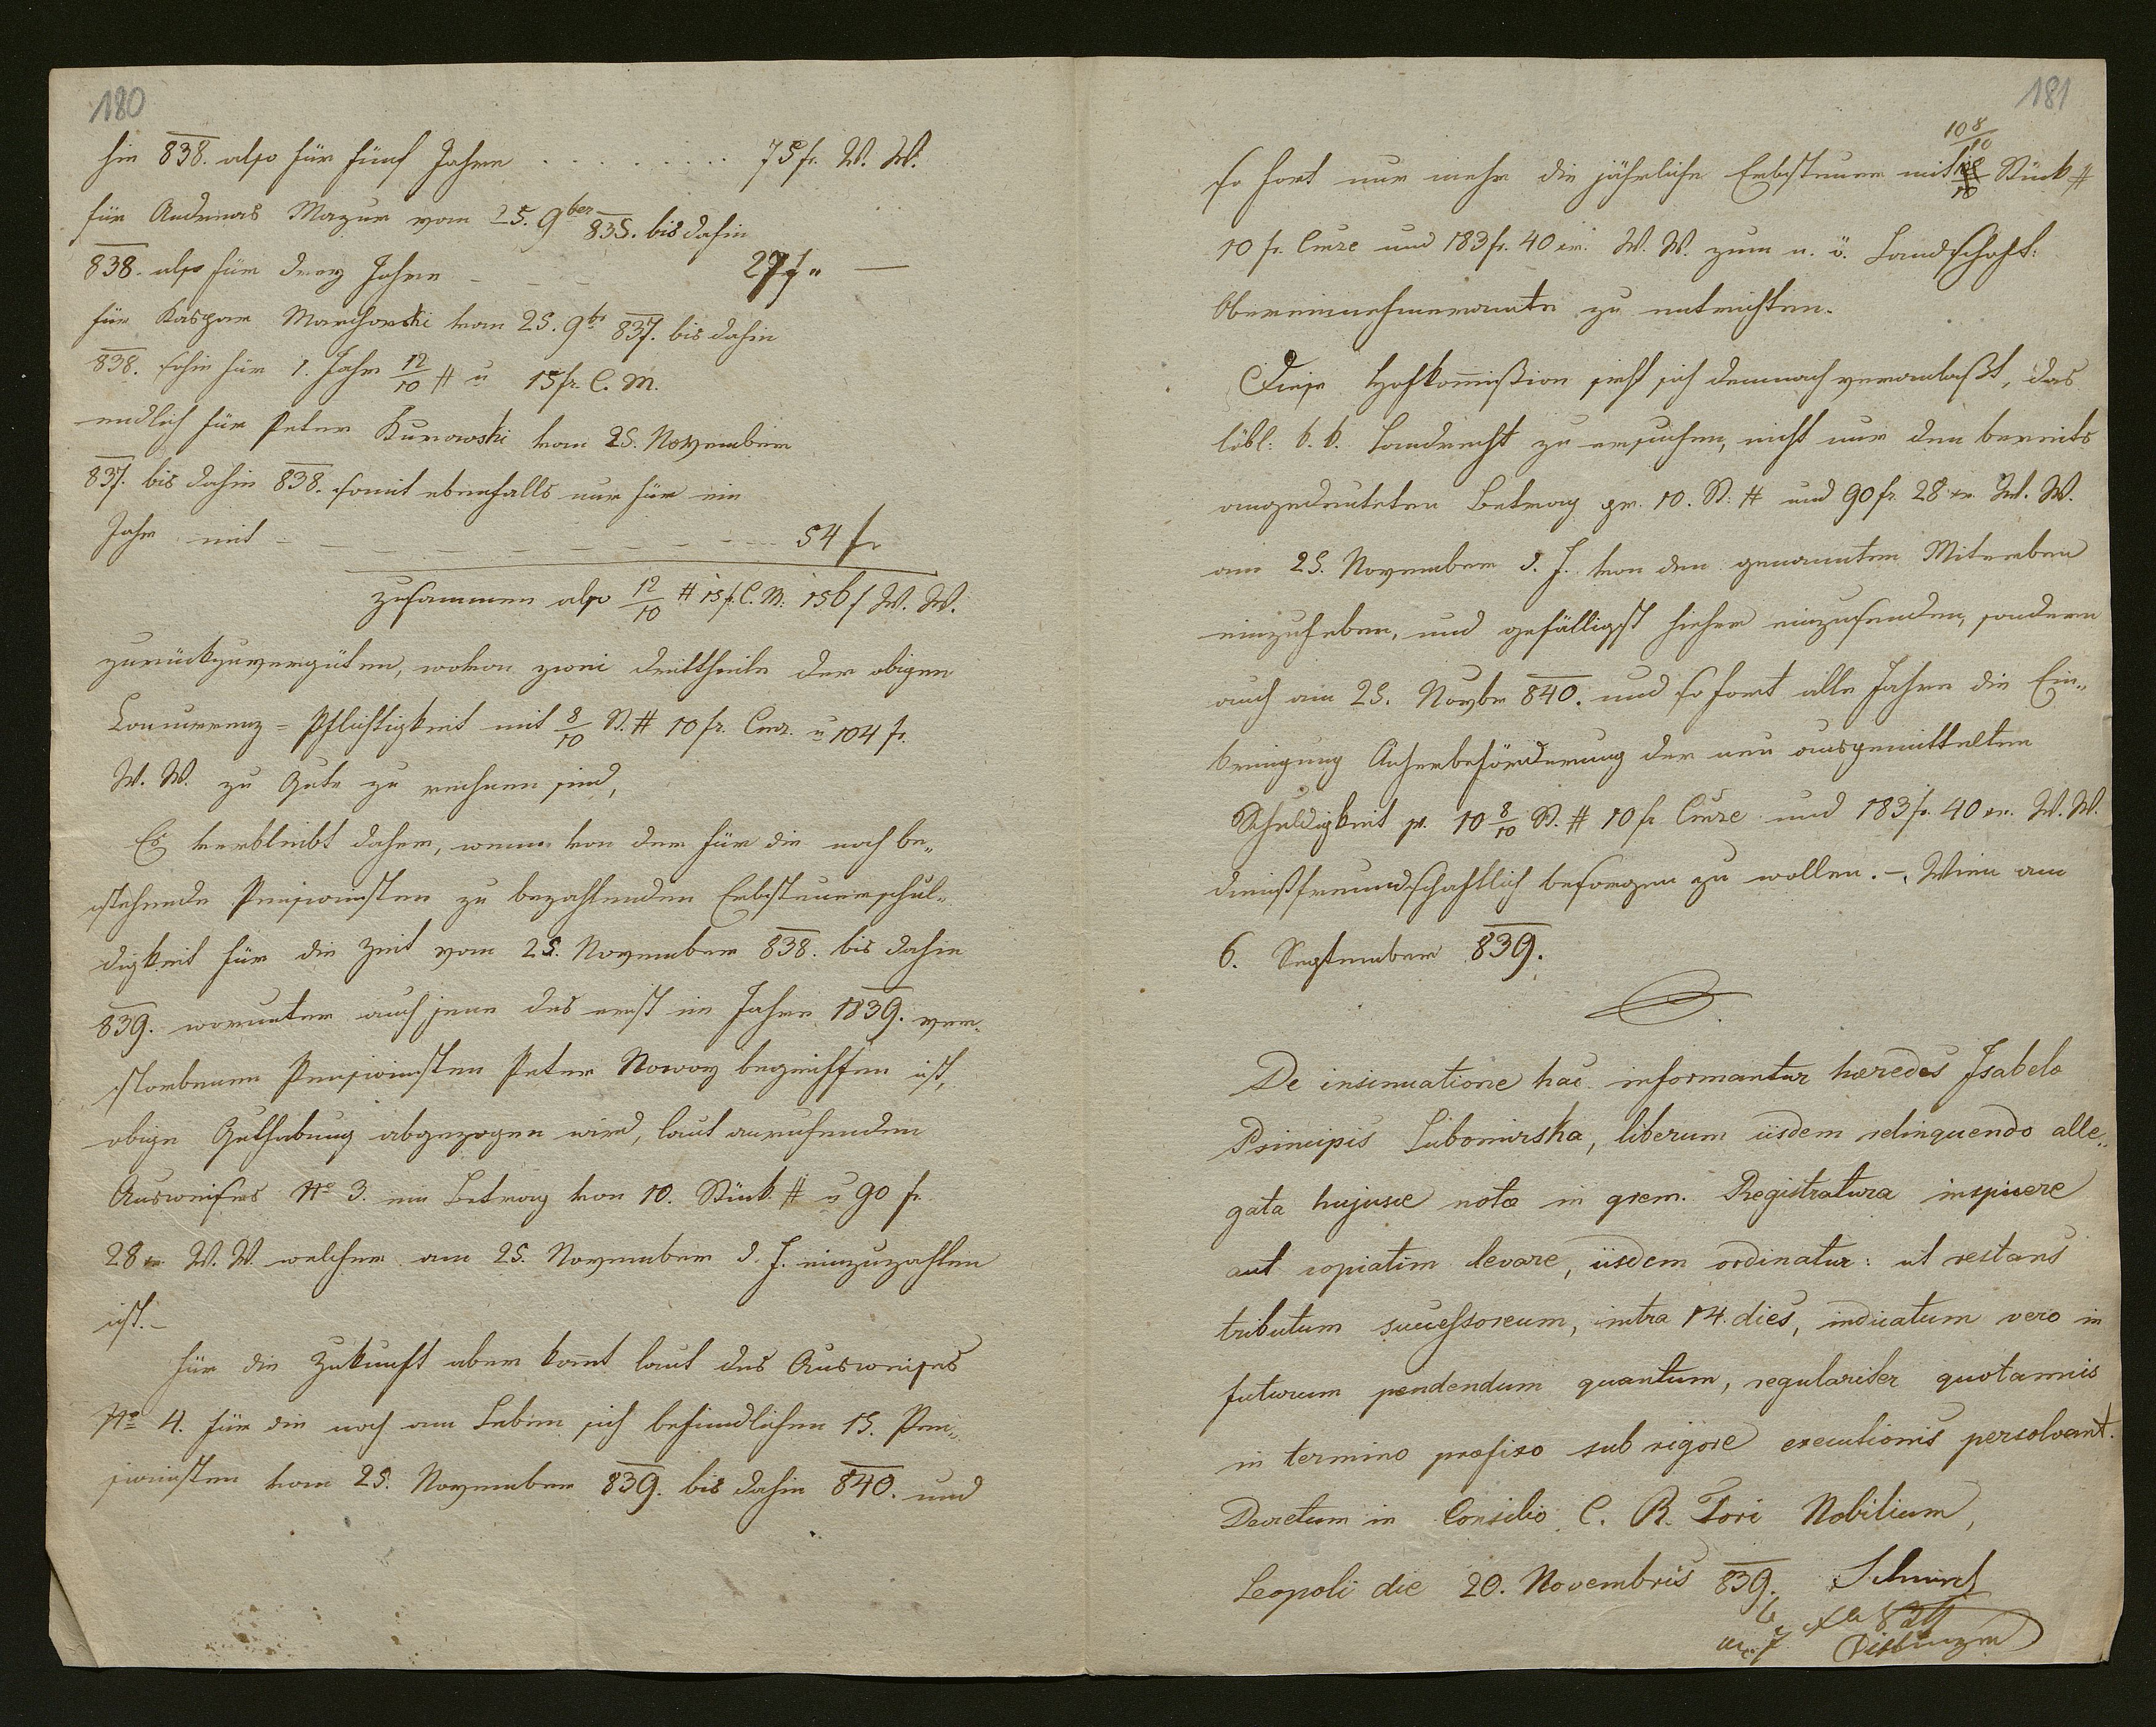 180
hin 838. also für fünf Jahre . . . . . . . . . 75 fr. W. W.
für Andreas Mazur vom 25. 9ber 835. bis dahin
838. also für drey Jahre - - - 27 f „ —
für Kaspar Marchorski vom 25. 9br 837. bis dahin
838. sohin für 1. Jahr 12/10 # u 15 fr. C. M.
endlich für Peter Kurowski vom 25. November
837. bis dahin 838. somit ebenfalls nur für ein
Jahr mit - - - - - - - - - 54 fr
zusammen also 12/10 # 15 f. C. M. 156 f W. W.
zurückzuvergüten, wovon zwei Drittheile der obigen
Concurrenz-Pflichtigkeit mit 8/10 St. # 10 fr. Cmz. u 104 fr.
W. W. zu Gute zu rechnen sind,
Es verbleibt daher, wenn von der für die noch be„
stehende Pensionisten zu bezahlenden Erbsteuerschul„
digkeit für die Zeit vom 25. November 838. bis dahin
839. worunter auch jene des erst im Jahre 1839. ver„
storbenen Pensionisten Peter Nowoy begriffen ist,
obige Guthabung abgezogen wird, laut anruhenden
Ausweises No 3. ein Betrag von 10. Stück # u 90 fr.
28 xr W. W. welcher am 25. November d. J. einzuzahlen
ist.-
Für die Zukunft aber kommt laut des Ausweises
No 4. für die noch am Leben sich befindlichen 15. Pen„
sionisten vom 25. November 839. bis dahin 840. und
181
108/10
so fort nur mehr die jährliche Erbsteuer mit Stück #
10 fr. Cmze und 183 fr. 40 xr. W. W. zum n. ö. Landschaft:
Obereinnehmeramte zu entrichten.
Diese Hofkommißion sieht sich demnach veranlaßt, das
löbl: k. k. Landrecht zu ersuchen, nicht nur den bereits
angedeuteten Betrag pr. 10. St. # und 90 fr. 28 xr. W. W.
am 25. November d. J. von den genannten Miterben
einzuheben, und gefälligst hieher einzusenden, sondern
auch am 25. Novbr 840. und so fort alle Jahre die Ein„
bringung Anherbeförderung der neu ausgemittelten
Schuldigkeit pr. 10 8/10 St. # 10 fr Cmze und 183 fr. 40 xr. W. W.
dienstfreundschaftlich besorgen zu wollen. -. Wien am
6. September 839.
De insinuatione hac informantur hæredes Isabelæ
Principis Lubomirska, liberum iisdem relinquendo alle„
gata hujusce notæ in grem. Registratura inspicere
aut copiatim levare, iisdem ordinatur: ut restans
tributum successoreum, intra 14. dies, indicatum vero in
futurum pendendum quantum, regulariter quotannis
in termino præfixo sub rigore executionis persolvant.
Decretum in Consilio C. R. Fori Nobilium,
Leopoli die 20. Novembris 839.